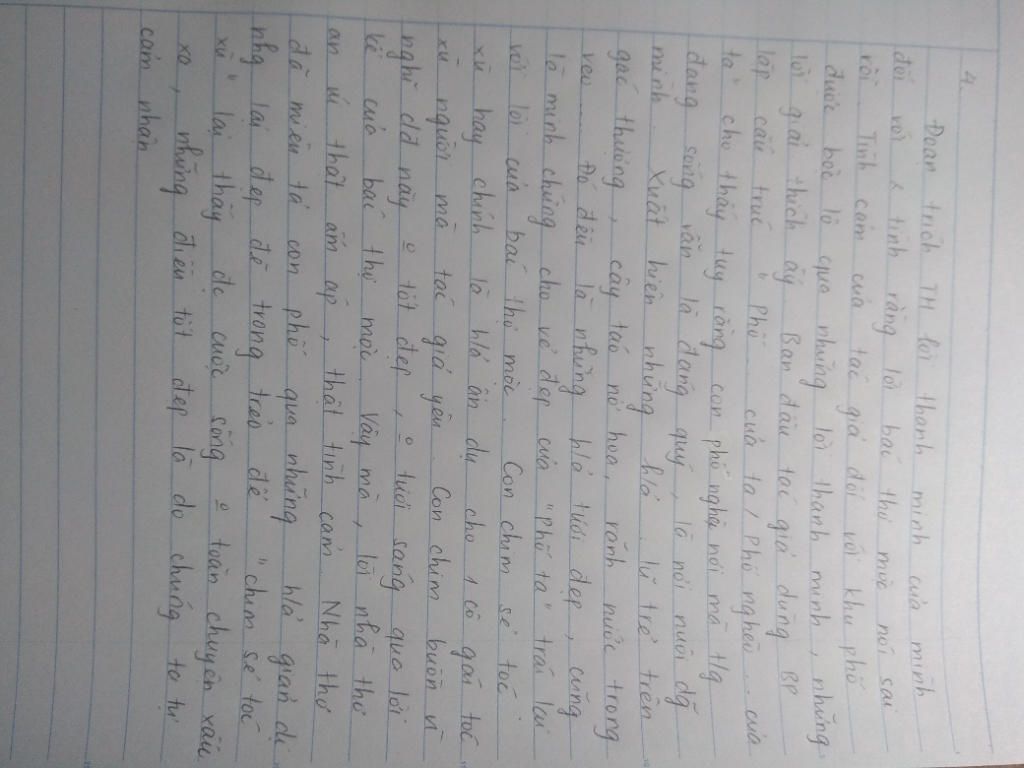 4.
Đoạn trích TH lời thanh minh của mình
đối với tình rằng lời bác thợ mộc nói sai
rồi. Tình cảm của tác giả đối với khu phố
được bộc lộ qua những lời thanh minh, những
lời giải thích ấy. Ban đầu tác giả dùng BP
lặp cấu trúc "Phố... của ta, Phố nghèo... của
ta" cho thấy tuy rằng con phố nghèo nơi mà t/g
đang sống vẫn là đáng quý, là nơi nuôi dg
mình. Xuất hiện những h/á lũ trẻ trên
gác thượng, cây táo nở hoa, rãnh nước trong
veo.... Đó đều là những h/ả tươi đẹp, cũng
là minh chứng cho vẻ đẹp của "phố ta" trái lại
với lời của bác thợ mộc. Con chim sẻ tóc
xù hay chính là h/á ẩn dụ cho 1 cô gái tóc
xù người mà tác giả yêu. Con chim buồn vì
nghĩ cđ này o tốt đẹp, o tươi sáng qua lời
kể của bác thợ mộc. Vậy mà, lời nhà thơ
an ủi thật ấm áp, thật tình cảm. Nhà thơ
đã miêu tả con phố qua những h/á giản dị
nhg lại đẹp đẽ trong trẻo để "chim sẻ tóc
xù" lại thấy đc cuộc sống o toàn chuyện xấu
xa, những điều tốt đẹp là do chúng ta tự
cảm nhận.